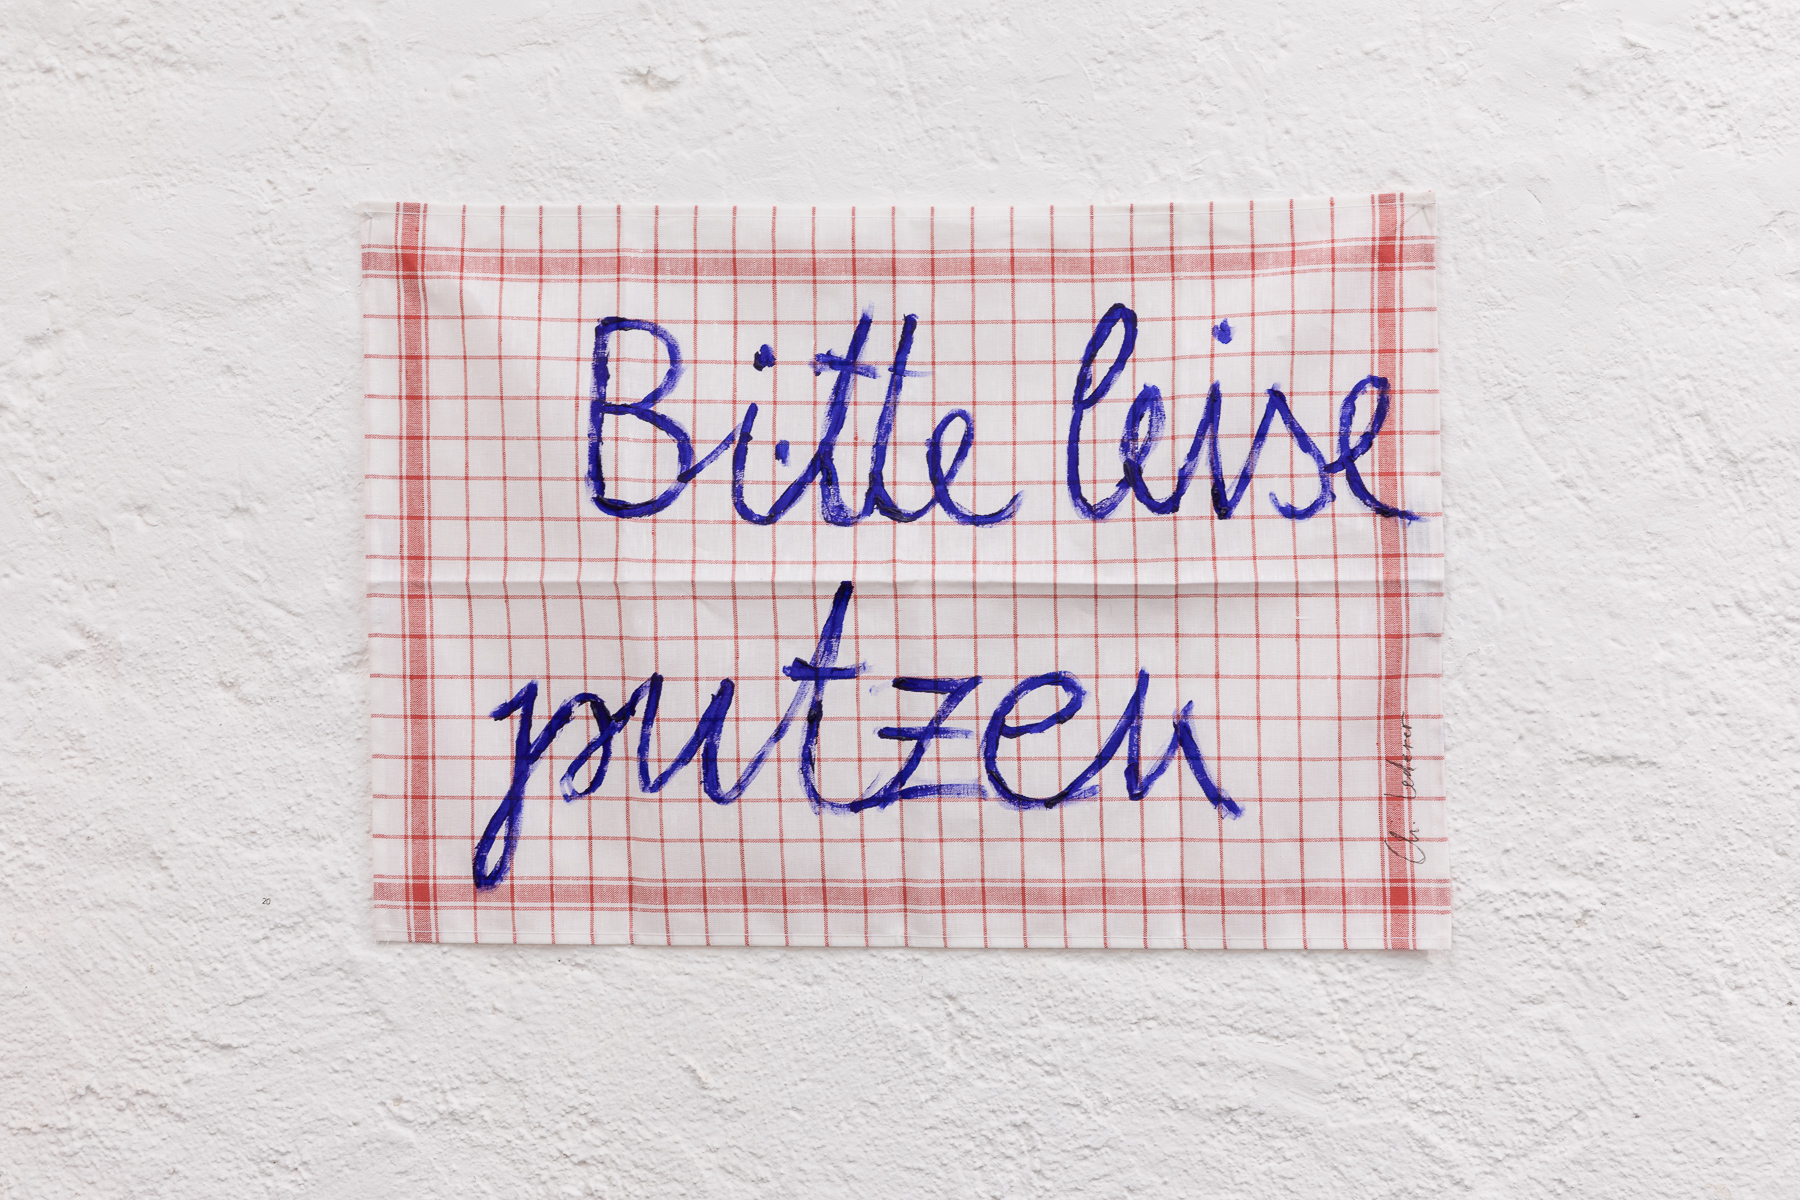 Bitte leise
putzen
Ch. Lederer
20